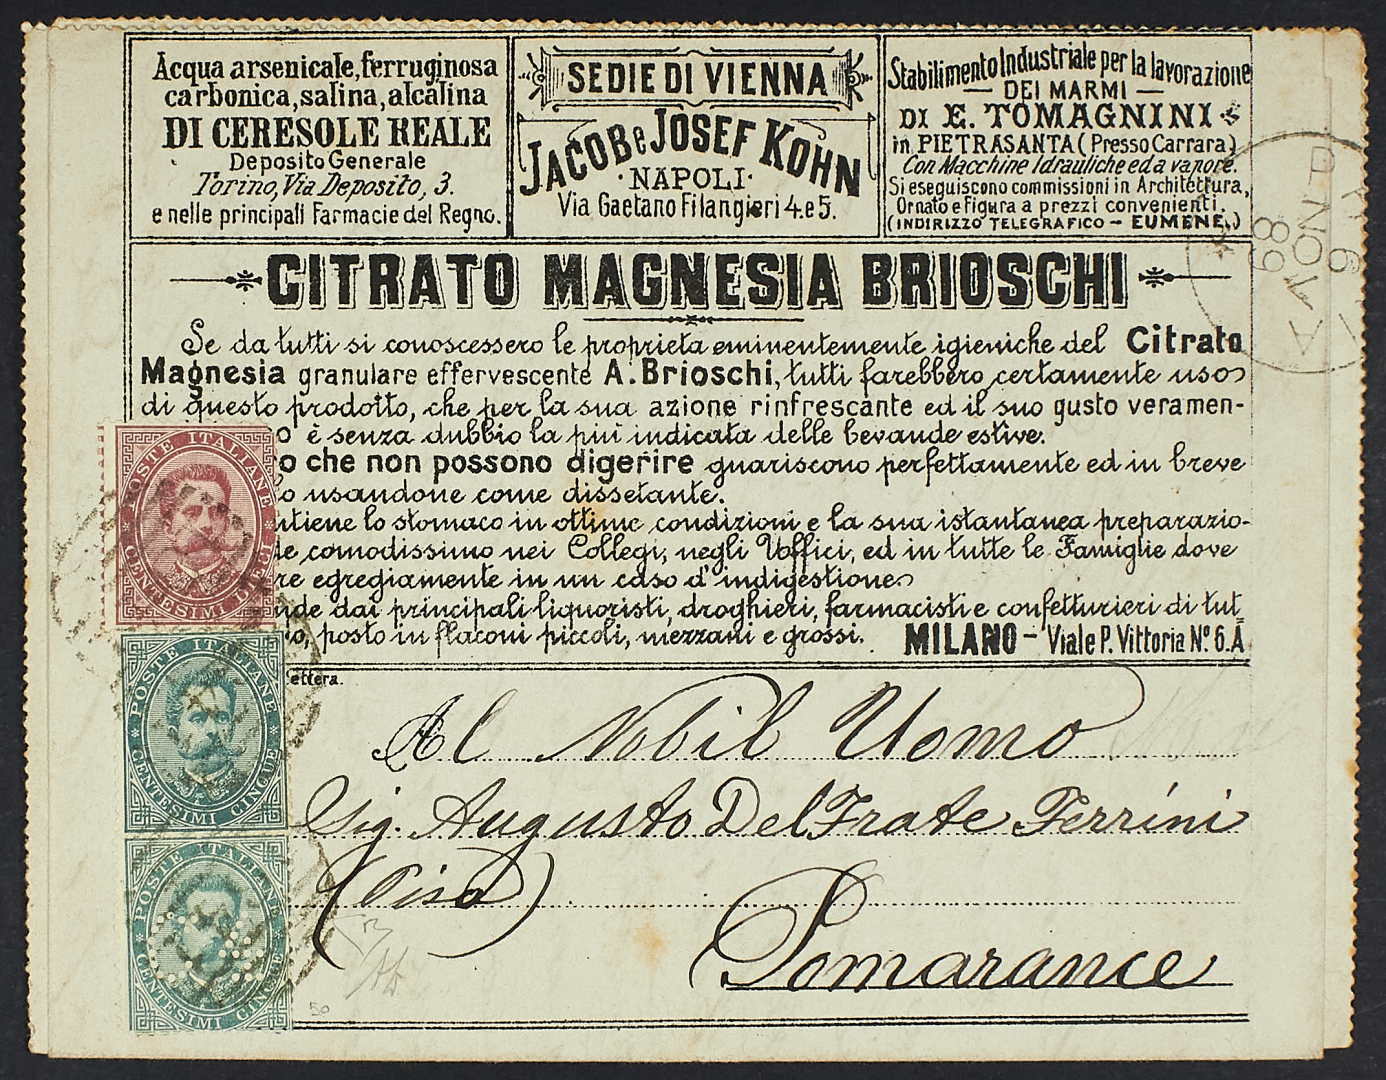 Acqua arsenicale, ferruginosa
carbonica, salina, alcalina
DI CERESOLE REALE
Deposito Generale
Torino, Via Deposito, 3.
e nelle principali Farmacie del Regno.
SEDIE DI VIENNA
JACOB e JOSEF KOHN
· NAPOLI ·
Via Gaetano Filangieri 4 e 5.
Stabilimento Industriale per la lavorazione
— DEI MARMI —
DI E. TOMAGNINI
in PIETRASANTA (Presso Carrara)
Con Macchine Idrauliche ed a vapore.
Si eseguiscono commissioni in Architettura,
Ornato e Figura a prezzi convenienti.
(INDIRIZZO TELEGRAFICO — EUMENE.)
6 NOV 89
CITRATO MAGNESIA BRIOSCHI
Se da tutti si conoscessero le proprietà eminentemente igieniche del Citrato
Magnesia granulare effervescente A. Brioschi, tutti farebbero certamente uso
di questo prodotto, che per la sua azione rinfrescante ed il suo gusto veramen-
o è senza dubbio la più indicata delle bevande estive.
o che non possono digerire guariscono perfettamente ed in breve
o usandone come dissetante.
ntiene lo stomaco in ottime condizioni e la sua istantanea preparazio-
de comodissimo nei Collegi, negli Uffici, ed in tutte le Famiglie dove
re egregiamente in un caso d'indigestione
nde dai principali liquoristi, droghieri, farmacisti e confetturieri di tut
o, posto in flaconi piccoli, mezzani e grossi. MILANO — Viale P. Vittoria Nº 6. A
ettera.
POSTE ITALIANE
CENTESIMI DIECI
POSTE ITALIANE
CENTESIMI CINQUE
POSTE ITALIANE
CENTESIMI CINQUE
Al Nobil Uomo
Sig. Augusto Del Frate Ferrini
(Pisa)
Pomarance
50